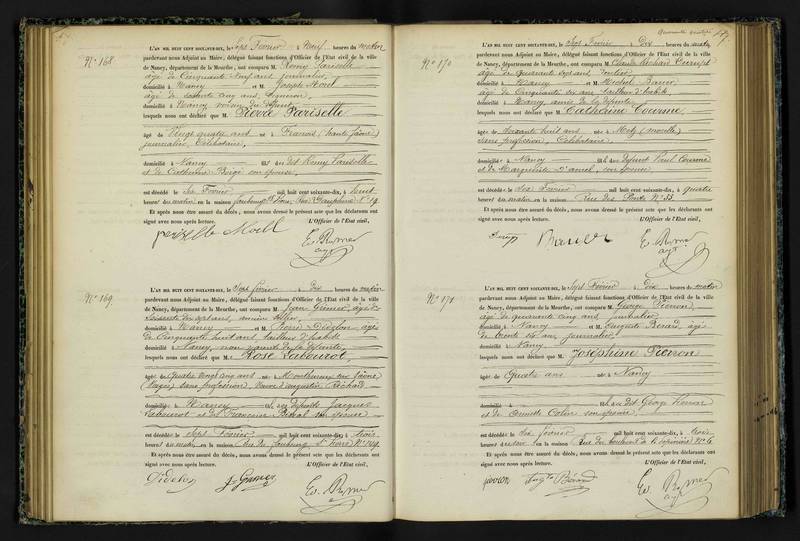 N° 168
L'AN MIL HUIT CENT SOIXANTE-DIX, le Sept Février à Neuf heures du matin
pardevant nous Adjoint au Maire, délégué faisant fonctions d'Officier de l'État civil de la ville
de Nancy, département de la Meurthe, ont comparu M. Remy Pariselle
âgé de Cinquante Neuf ans, journalier,
domicilié à Nancy et M. Joseph
âgé de soixante cinq ans, vigneron
domicilié à Nancy voisin du défunt
lesquels nous ont déclaré que M. Pierre Pariselle
âgé de Vingt quatre ans né à Franois (haute Saône)
journalier, Célibataire,
domicilié à Nancy fils des dit Remy Pariselle
et de Catherine son épouse,
est décédé le six Février mil huit cent soixante-dix, à huit
heures du matin en la maison faubourg St Pierre, N° 19
Et après nous être assuré du décès, nous avons dressé le présent acte que les déclarants ont
signé avec nous après lecture. L'Officier de l'État civil,
N° 169
L'AN MIL HUIT CENT SOIXANTE-DIX, le Sept février à dix heures du matin
pardevant nous Adjoint au Maire, délégué faisant fonctions d'Officier de l'État civil de la ville
de Nancy, département de la Meurthe, ont comparu M. Jean Grimer, âgé de
soixante dix ans, ancien
domicilié à Nancy et M. Pierre Didelon, âgé
de Cinquante huit ans, tailleur d'habits
domicilié à Nancy, non parents de la défunte,
lesquels nous ont déclaré que M.e Rose Labourot
âgée de Quatre vingt cinq ans née à Monthureux sur Saône
(Vosges) sans profession, Veuve d'Augustin Richard
domiciliée à Nancy des défunts Jacques
Labourot et de Françoise son épouse
est décédée le Sept Février mil huit cent soixante-dix, à trois
heures du matin en la maison Rue du faubourg St Pierre N°
Et après nous être assuré du décès, nous avons dressé le présent acte que les déclarants ont
signé avec nous après lecture. L'Officier de l'État civil,
Didelon J. Grimer
N° 170
L'AN MIL HUIT CENT SOIXANTE-DIX, le Sept Février à Dix heures du matin
pardevant nous Adjoint au Maire, délégué faisant fonctions d'Officier de l'État civil de la ville
de Nancy, département de la Meurthe, ont comparu M. Claude
âgé de Quarante sept ans rentier
domicilié à Nancy et M. Michel Bauer
âgé de Cinquante six ans tailleur d'habits,
domicilié à Nancy, amis de la défunte,
lesquels nous ont déclaré que M. Catherine Courme
âgée de Soixante huit ans née à Metz (moselle)
sans profession, Célibataire,
domiciliée à Nancy fille des défunts Paul Courme
et de Marguerite son épouse
est décédée le Six Février mil huit cent soixante-dix, à quatre
heures du matin en la maison Rue des Ponts N° 33
Et après nous être assuré du décès, nous avons dressé le présent acte que les déclarants ont
signé avec nous après lecture. L'Officier de l'État civil,
Bauer
N° 171
L'AN MIL HUIT CENT SOIXANTE-DIX, le Sept Février à Dix heures du matin
pardevant nous Adjoint au Maire, délégué faisant fonctions d'Officier de l'État civil de la ville
de Nancy, département de la Meurthe, ont comparu M. George Pierron,
âgé de quarante cinq ans, journalier
domicilié à Nancy et M. Auguste Bérard, âgé
de trente six ans, journalier
domicilié à Nancy
lesquels nous ont déclaré que M. Joséphine Pierron
âgée de Quatre ans née à Nancy
domiciliée à des dit George Pierron
et de Colin son épouse,
est décédée le Six février mil huit cent soixante-dix, à trois
heures du soir en la maison Rue du N° 6
Et après nous être assuré du décès, nous avons dressé le présent acte que les déclarants ont
signé avec nous après lecture. L'Officier de l'État civil,
pierron Bérard